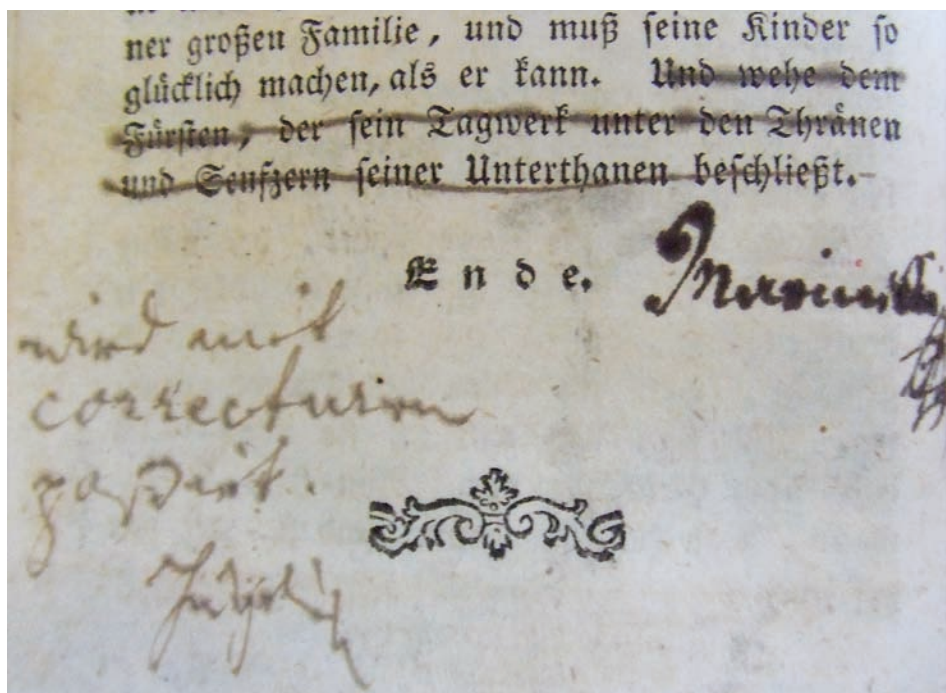 ner großen Familie, und muß seine Kinder so
glücklich machen, als er kann. Und wehe dem
Fürsten, der sein Tagwerk unter den Thränen
und Seufzern seiner Unterthanen beschließt.
Ende.
wird mit
correcturen
passirt.